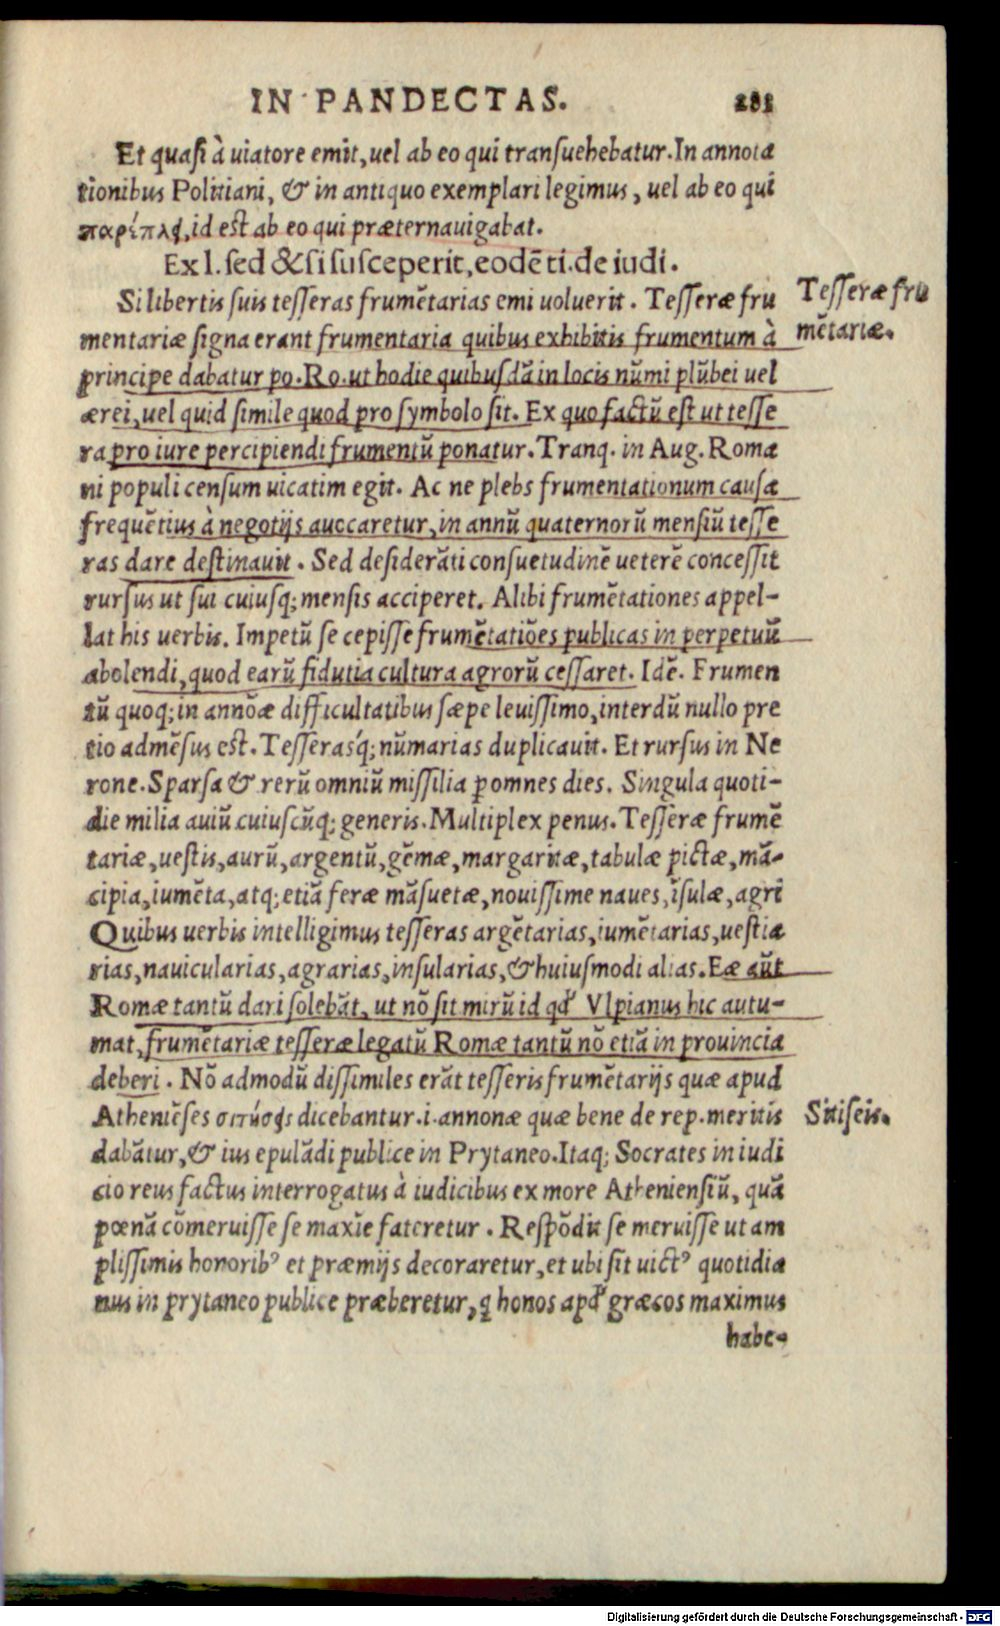 IN PANDECTAS. 281
Et quasi à uiatore emit, uel ab eo qui transuehebatur. In annota
tionibus Politiani, & in antiquo exemplari legimus, uel ab eo qui
id est ab eo qui præternauigabat.
Ex l. sed & si susceperit, eodē ti. de iudi.
Si libertis suis tesseras frumētarias emi uoluerit. Tesseræ fru
mentariæ signa erant frumentaria quibus exhibitis frumentum à
principe dabatur po. Ro. ut hodie quibusdā in locis nūmi plūbei uel
ærei, uel quid simile quod pro symbolo sit. Ex quo factū est ut tesse
ra pro iure percipiendi frumentū ponatur. Tranq. in Aug. Roma
ni populi censum uicatim egit. Ac ne plebs frumentationum causa
frequētius à negotijs auocaretur, in annū quaternorū mensiū tesse
ras dare destinauit. Sed desiderāti consuetudinē ueterē concessit
rursus ut sui cuiusq; mensis acciperet. Alibi frumētationes appel-
lat his uerbis. Impetū se cepisse frumētatiōes publicas in perpetuū
abolendi, quod earū fidutia cultura agrorū cessaret. Idē. Frumen
tū quoq; in annōæ difficultatibus sæpe leuissimo, interdū nullo pre
tio admēsus est. Tesserasq́; nūmarias duplicauit. Et rursus in Ne
rone. Sparsa & rerū omniū missilia ꝑ omnes dies. Singula quoti-
die milia auiū cuiuscūq; generis. Multiplex penus. Tesseræ frumē
tariæ, uestis, aurū, argentū, gēmæ, margaritæ, tabulæ pictæ, mā-
cipia, iumēta, atq; etiā feræ māsuetæ, nouissime naues, īsulæ, agri
Quibus uerbis intelligimus tesseras argētarias, iumētarias, uestia
rias, nauicularias, agrarias, insularias, & huiusmodi alias. Eæ aūt
Romæ tantū dari solebāt, ut nō sit mirū id qd̛ Vlpianus hic autu-
mat, frumētariæ tesseræ legatū Romæ tantū nō etiā in prouincia
deberi. Nō admodū dissimiles erāt tesseris frumētarijs quæ apud
Atheniēses dicebantur .i. annonæ quæ bene de rep. meritis
dabātur, & ius epulādi publice in Prytaneo. Itaq; Socrates in iudi
cio reus factus interrogatus à iudicibus ex more Atheniensiū, quā
pœnā cōmeruisse se maxīe fateretur. Respōdit se meruisse ut am
plissimis honoribꝰ et præmijs decoraretur, et ubi sit uictꝰ quotidia
nus in prytaneo publice præberetur, q honos apd̛ græcos maximus
habe-
Tesseræ fru
mētariæ.
Sitiseis.
Digitalisierung gefördert durch die Deutsche Forschungsgemeinschaft - DFG